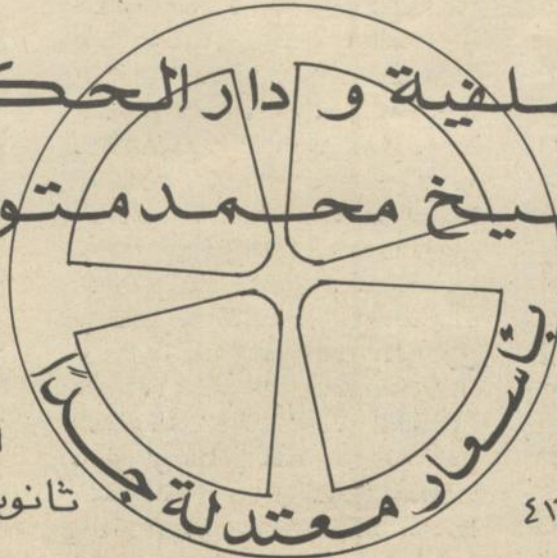 ـلفية و دار الحكـ
ـيخ محمد متو
بأسعار معتدلة جدًا
ثانو
٤١